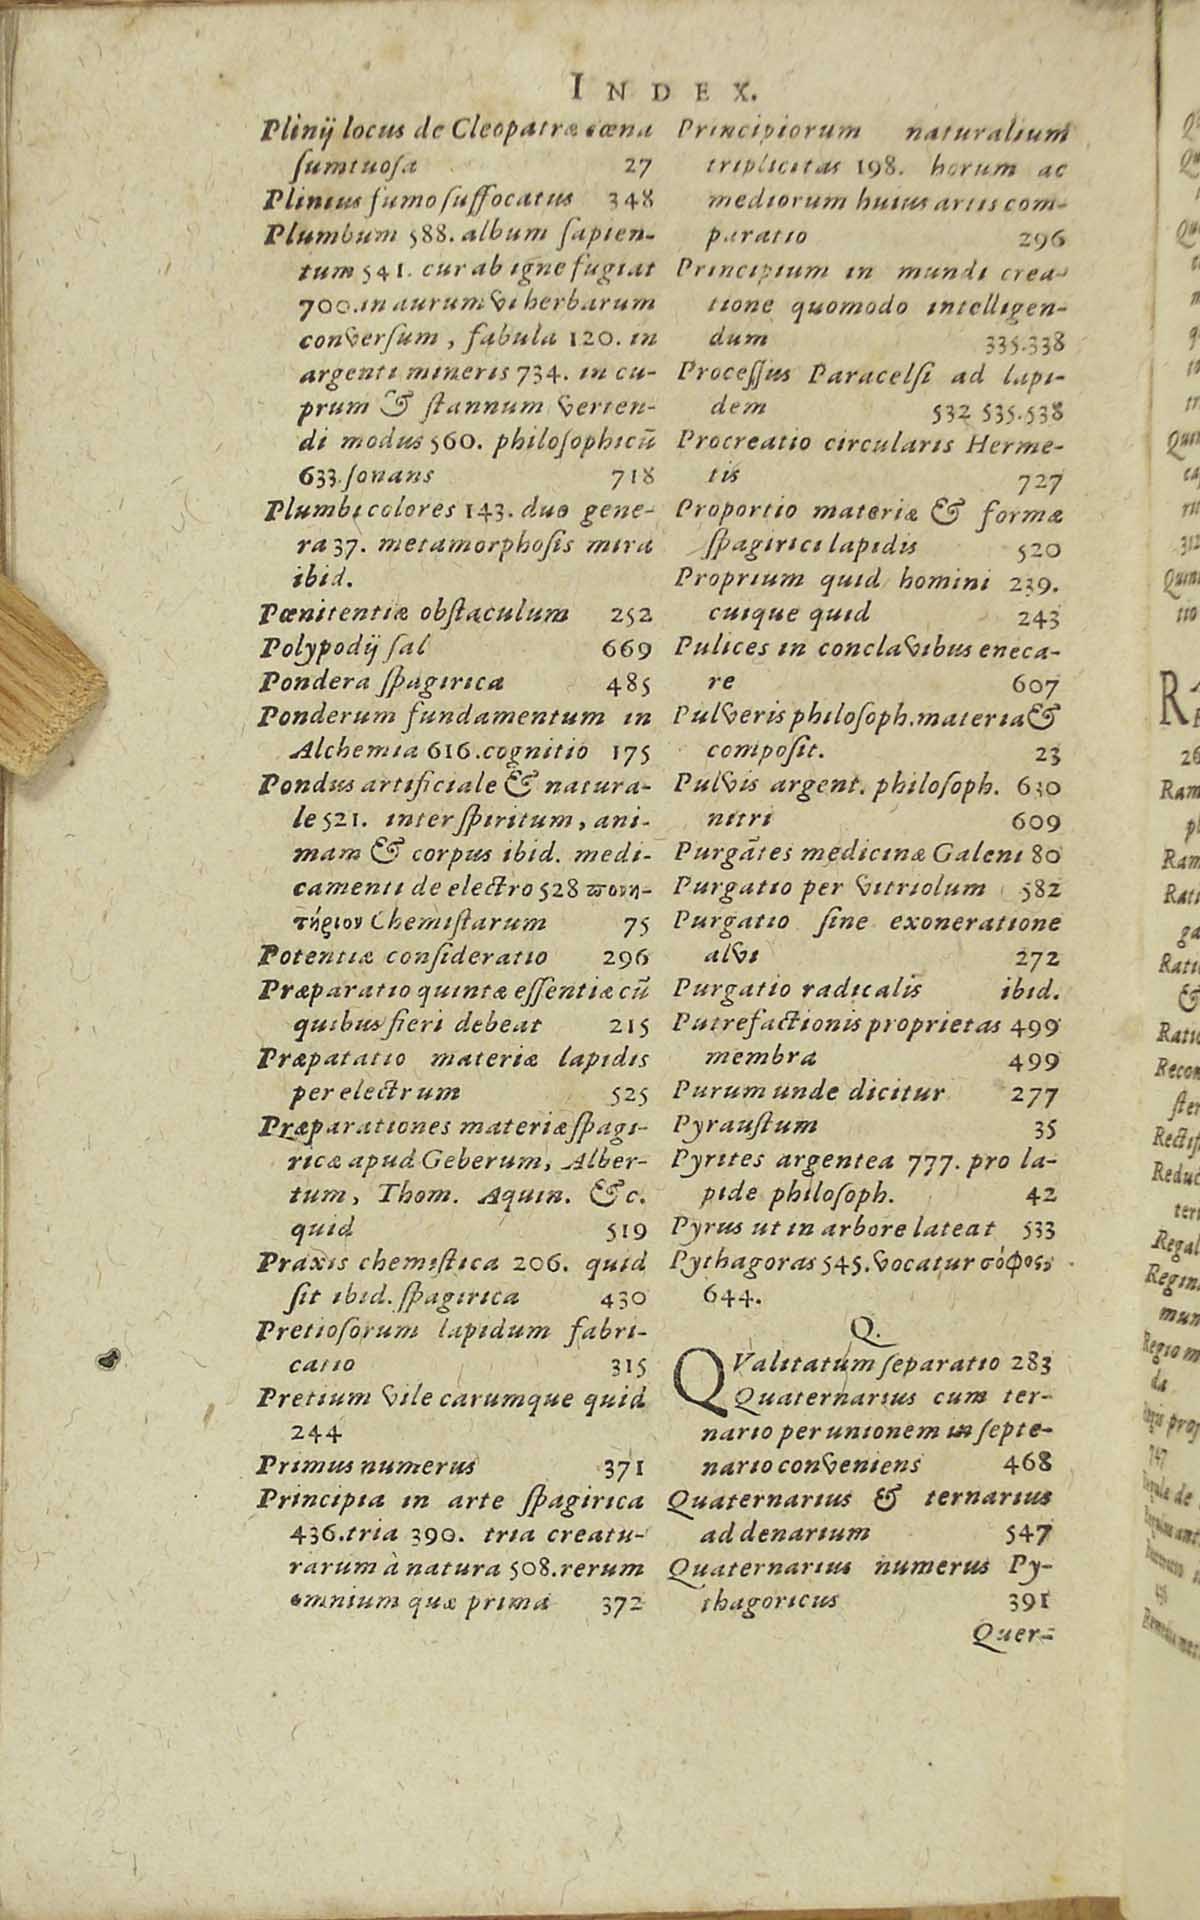 INDEX.
Plinij locus de Cleopatræ cœna
sumtuosa 27
Plinius fumo suffocatus 348
Plumbum 588. album sapien-
tum 541. cur ab igne fugiat
700. in aurum vi herbarum
conversum, fabula 120. in
argenti mineris 734. in cu-
prum & stannum verten-
di modus 560. philosophicū
633. sonans 718
Plumbi colores 143. duo gene-
ra 37. metamorphosis mira
ibid.
Pœnitentiæ obstaculum 252
Polypodij sal 669
Pondera spagirica 485
Ponderum fundamentum in
Alchemia 616. cognitio 175
Pondus artificiale & natura-
le 521. inter spiritum, ani-
mam & corpus ibid. medi-
camenti de electro 528 ποιη-
τήριον Chemistarum 75
Potentiæ consideratio 296
Præparatio quintæ essentiæ cū
quibus fieri debeat 215
Præpatatio materiæ lapidis
per electrum 525
Præparationes materiæ spagi-
ricæ apud Geberum, Alber-
tum, Thom. Aquin. &c.
quid 519
Praxis chemistica 206. quid
sit ibid. spagirica 430
Pretiosorum lapidum fabri-
catio 315
Pretium vile carumque quid
244
Primus numerus 371
Principia in arte spagirica
436. tria 390. tria creatu-
rarum à natura 508. rerum
omnium quæ prima 372
Principiorum naturalium
triplicitas 198. horum ac
mediorum huius artis com-
paratio 296
Principium in mundi crea-
tione quomodo intelligen-
dum 335.338
Processus Paracelsi ad lapi-
dem 532 535.538
Procreatio circularis Herme-
tis 727
Proportio materiæ & formæ
spagirici lapidis 520
Proprium quid homini 239.
cuique quid 243
Pulices in conclavibus eneca-
re 607
Pulveris philosoph. materia &
composit. 23
Pulvis argent. philosoph. 630
nitri 609
Purgātes medicinæ Galeni 80
Purgatio per vitriolum 582
Purgatio sine exoneratione
alvi 272
Purgatio radicalis ibid.
Putrefactionis proprietas 499
membra 499
Purum unde dicitur 277
Pyraustum 35
Pyrites argentea 777. pro la-
pide philosoph. 42
Pyrus ut in arbore lateat 533
Pythagoras 545. vocatur σόφος
644.
Q.
QValitatum separatio 283
Quaternarius cum ter-
nario per unionem in septe-
nario conveniens 468
Quaternarius & ternarius
ad denarium 547
Quaternarius numerus Py-
thagoricus 391
Quer-